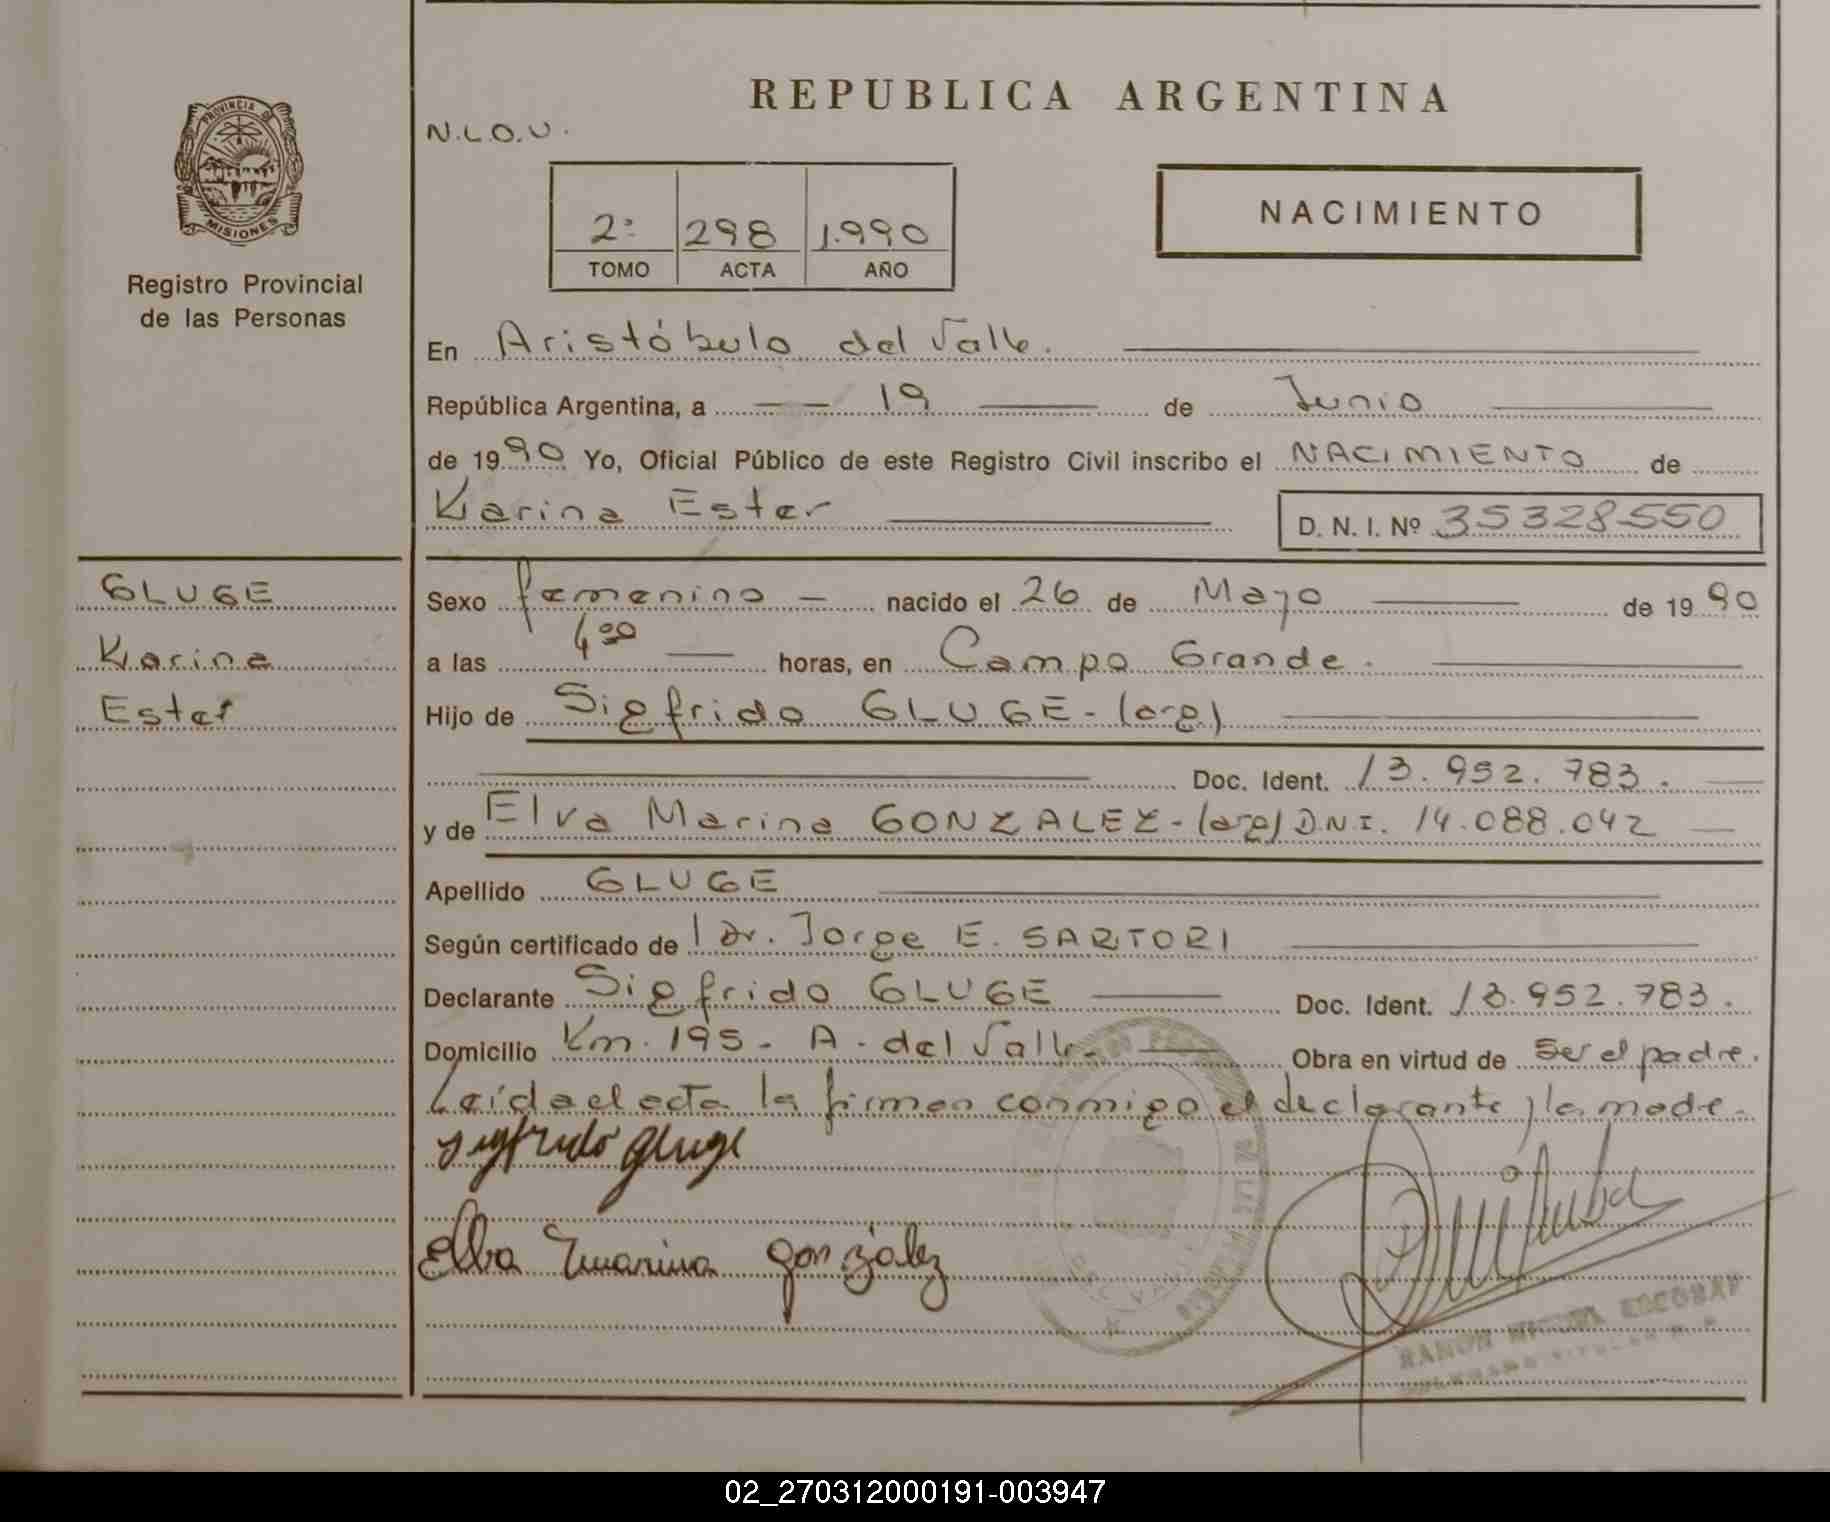 REPUBLICA ARGENTINA
N.L.O.U.
PROVINCIA DE
MISIONES
Registro Provincial
de las Personas
2º 298 1.990
TOMO ACTA AÑO
NACIMIENTO
En Aristóbulo del Valle.
República Argentina, a 19 de Junio
de 1990 Yo, Oficial Público de este Registro Civil inscribo el NACIMIENTO de
Karina Ester D. N. I. Nº 35328550
GLUGE
Karina
Ester
Sexo femenino nacido el 26 de Mayo de 1990
a las 4 00 horas, en Campo Grande.
Hijo de Sigfrido GLUGE - (arg)
Doc. Ident. 13.952.783.
y de Elva Marina GONZALEZ - (arg) D.N.I. 14.088.042
Apellido GLUGE
Según certificado de Dr. Jorge E. SARTORI
Declarante Sigfrido GLUGE Doc. Ident. 13.952.783.
Domicilio Km. 195 - A. del Valle Obra en virtud de Ser el padre.
Leída el acta la firman conmigo el declarante y la madre.
sigfrido gluge
Elba marina gonzález
RAMON MIGUEL ESCOBAR
02_270312000191-003947